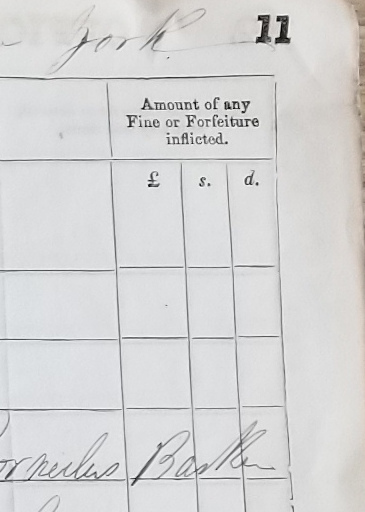 York 11
Amount of any
Fine or Forfeiture
inflicted.
£ s. d.
Cornelius Barker